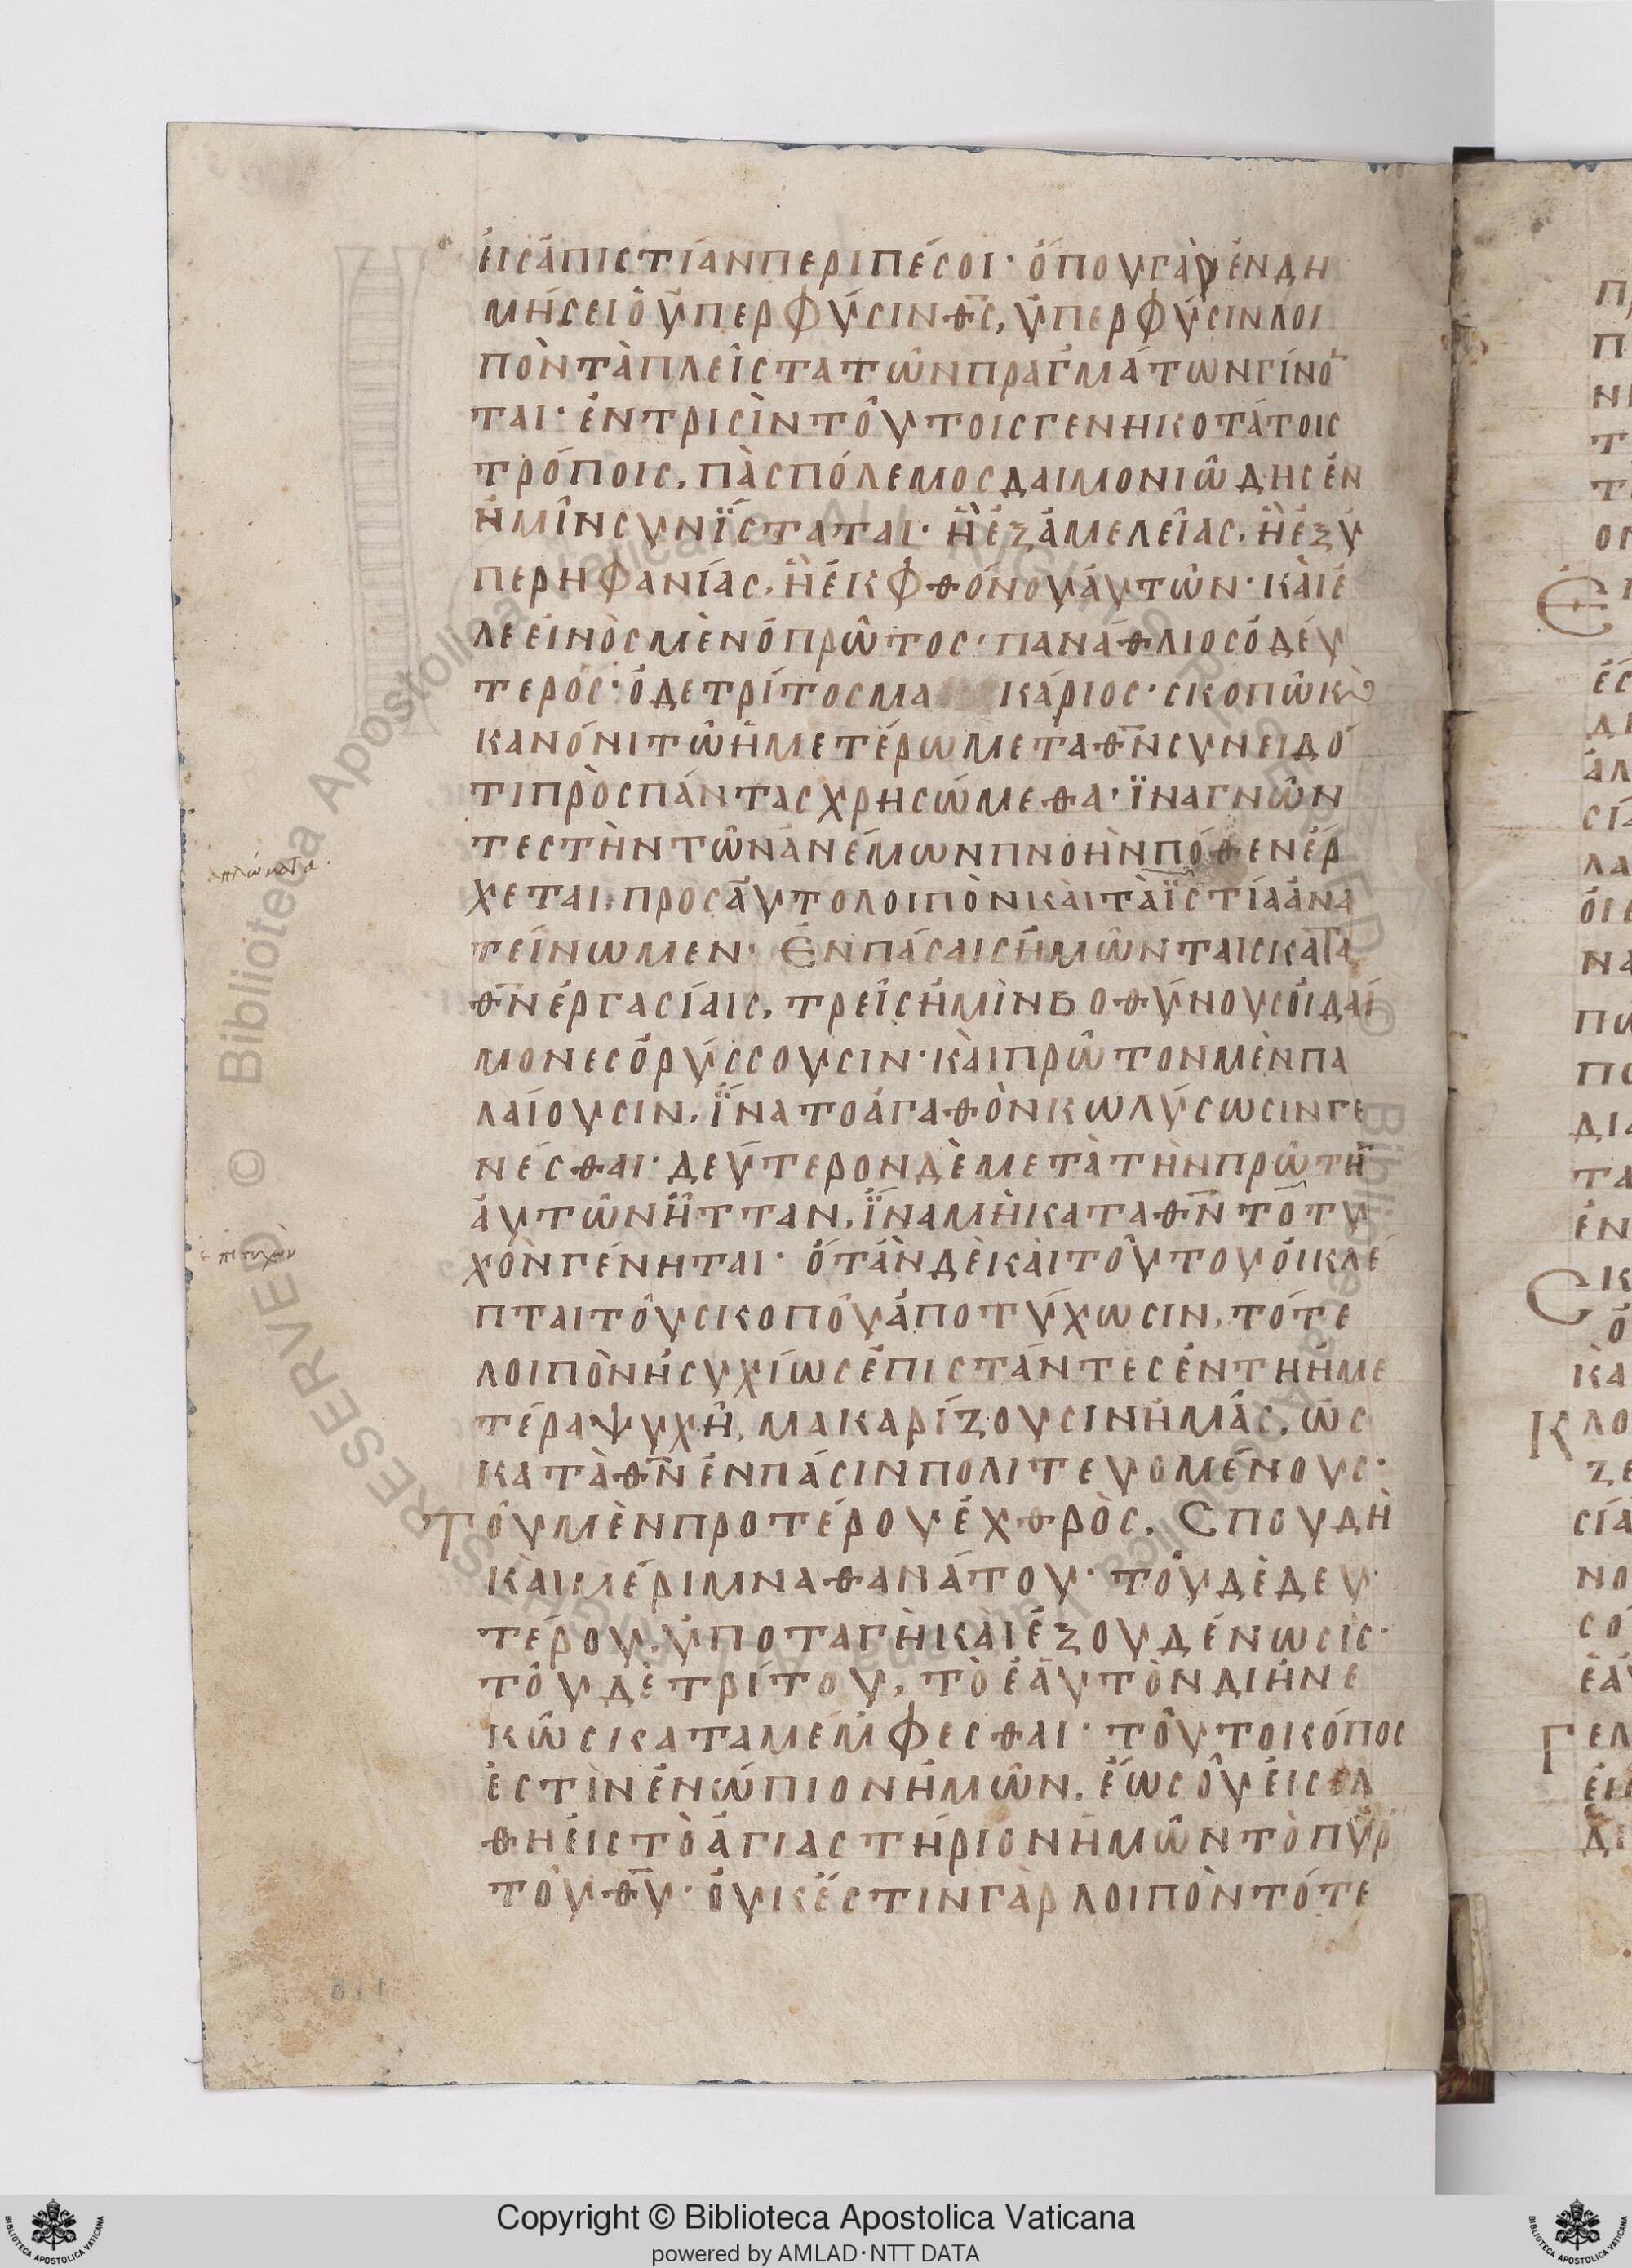 ἐισἀπιστίανπεριπέσοι· ὅπουγὰρἐνδη
μήσειὁὑπερφύσινθ̅ς̅, ὑπερφύσινλοι
πὸντὰπλεῖστατῶνπραγμάτωνγίνο̅
ται· ἐντρισὶντούτοιςγενηκοτάτοις
τρόποις, πὰςπόλεμοςδαιμονιώδηςἐν
ἡμῖνσυνΐσταται· ἢἐξἀμελείας, ἢἐξὑ
περηφανίας, ἢἐκφθόνουἀυτῶν· κὰιἐ
λεεινὸςμὲνὁπρῶτος· πανάθλιοσὁδέυ
τερος· ὁδετρίτοσμα κάριος· σκοπῶκὶ
κανόνιτῶἡμετέρωμεταθ̅ν̅συνειδό
τιπρὸσπάνταςχρησώμεθα· ἵναγνῶν
τεστὴντῶνἀνέμωνπνοὴνπόθενἔρ
χεται, προσἀυτολοιπὸνκὰιτὰἱστίαἀνα
τείνωμεν· Ἐνπάσαισἡμῶνταισκατα
θ̅ν̅ἐργασίαις, τρεῖσἡμῖνβοθύνουσὁιδαί
μονεσὀρύσσουσιν· κὰιπρῶτονμὲνπα
λαίουσιν, ἵνατοἀγαθὸνκωλύσωσινγε
νέσθαι· δεύτερονδὲμετὰτὴνπρώτη̅
ἀυτῶνἧτταν, ἵναμὴκαταθ̅ν̅τοτυ
χὸνγένηται· ὅτὰνδὲκὰιτούτουὁικλέ
πταιτοῦσκοποῦἀποτύχωσιν, τότε
λοιπὸνἡσυχίωσἐπιστάντεσἐντηἡμε
τέραψυχῆ, μακαρίζουσινἡμᾶς, ὡς
κατὰθ̅ν̅ἐνπάσινπολιτευομένους·
Τοῦμὲνπροτέρουἐχθρὸς, Σπουδὴ
κὰιμέριμναθανάτου· τοῦδὲδευ
τέρου, ὑποταγὴκὰιἐξουδένωσις·
τοῦδὲτρίτου, τὸἑαυτὸνδιηνε
κῶσκαταμέμφεσθαι· τοῦτοκόπος
ἐστὶνἐνώπιονἡμῶν, ἕωσοὗἐισελ
θηἐιστὸἁγιαστήριονἡμῶντὸπῦρ
τοῦθ̅υ̅· ὀυκἔστινγὰρλοιπὸντότε
ἁπλώματα.
ἐπιτυχὸν
Copyright © Biblioteca Apostolica Vaticana
powered by AMLAD·NTT DATA